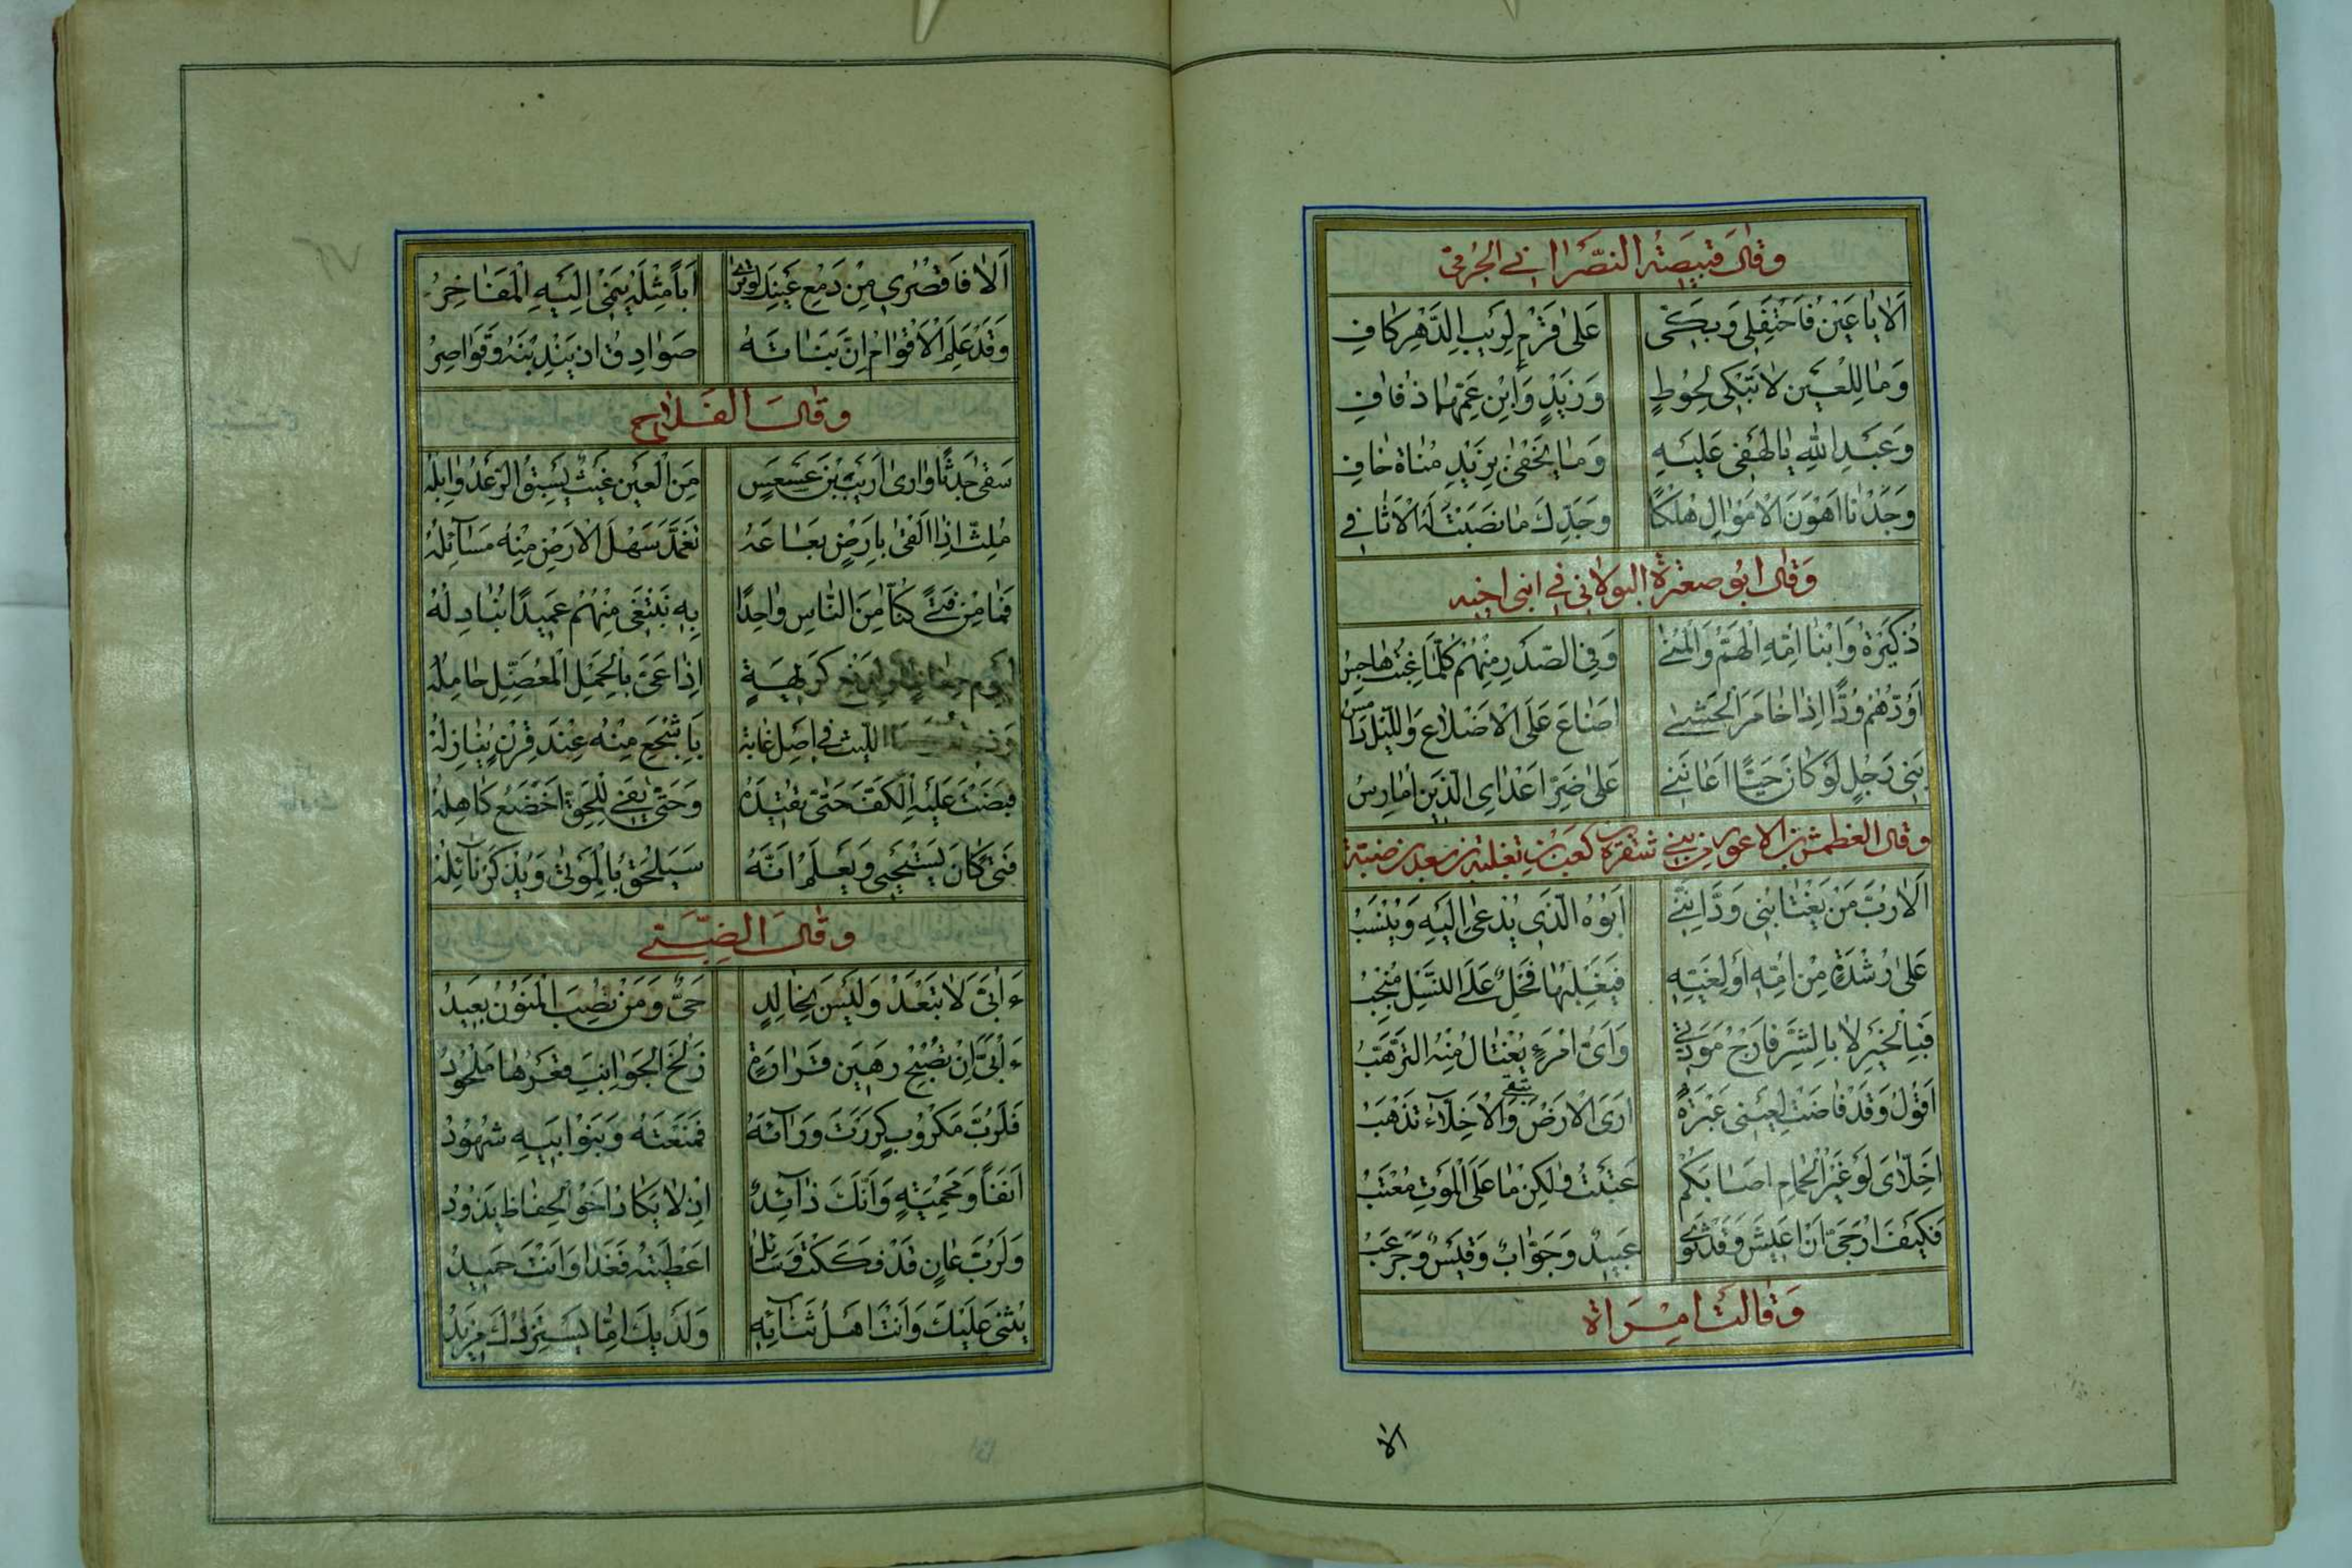 وَقَالَ قَبِيصَةُ النَّصْرَانِي الْجُرْمِيّ
اَلَا يَا عَيْنُ فَاحْتَفِلِي وَبَكِّي عَلَى قَرْمٍ لِرَيْبِ الدَّهْرِ كَافِ
وَمَا لِلْعَيْنِ لَا تَبْكِي لِحُوطٍ وَزَيْدٍ وَابْنِ عَمِّهِمَا ذُفَافِ
وَعَبْدِ اللهِ يَا لَهْفِي عَلَيْهِ وَمَا يَخْفَى بِزَيْدِ مَنَاةَ خَافِ
وَجَدْنَا اَهْوَنَ الْاَمْوَالِ هُلْكًا وَجَدِّكَ مَا نَصَبْتَ لَهُ الْاَثَافِي
وَقَالَ اَبُو صَعْتَرَةَ الْبَوْلَانِي فِي ابْنَي اَخِيهِ
زُكَيْرَةُ وَابْنَا اُمِّهِ الْهَمُّ وَالْمُنَى وَفِي الصَّدْرِ مِنْهُمْ كُلَّمَا غِبْتُ هَاجِسُ
اَوَدُّهُمْ وُدًّا اِذَا خَامَرَ الْحَشَى اَضَاعَ عَلَى الْاَضْلَاعِ وَاللَّيْلُ دَامِسُ
بَنِي رَجُلٍ لَوْ كَانَ حَيًّا اَعَانَنِي عَلَى ضَرِّ اَعْدَائِي الَّذِينَ اُمَارِسُ
وَقَالَ الْغَطَمَّشُ بْنُ الْاَعْوَرِ مِنْ بَنِي شَقِرَةَ بْنِ كَعْبِ بْنِ ثَعْلَبَةَ بْنِ سَعْدِ بْنِ ضَبَّةَ
اَلَا رُبَّ مَنْ يَغْتَابُنِي وَدَّ اَنَّنِي اَبُوهُ الَّذِي يُدْعَى اِلَيْهِ وَيُنْسَبُ
عَلَى رُشْدَةٍ مِنْ اُمِّهِ اَوْ لِغَيَّةٍ فَيَغْلِبُهَا فَحْلٌ عَلَى النَّسْلِ مُنْجِبُ
فَبِالْخَيْرِ لَا بِالشَّرِّ فَارْجُ مَوَدَّتِي وَاَيُّ امْرِئٍ يُغْتَالُ مِنْهُ التَّرَهُّبُ
اَقُولُ وَقَدْ فَاضَتْ لِعَيْنِي عَبْرَةٌ اَرَى الْاَرْضَ تَبْقَى وَالْاَخِلَّاءَ تَذْهَبُ
اَخِلَّايَ لَوْ غَيْرُ الْحِمَامِ اَصَابَكُمْ عَتَبْتُ وَلَكِنْ مَا عَلَى الْمَوْتِ مُعْتَبُ
فَكَيْفَ اُرَجِّي اَنْ اَعِيشَ وَقَدْ ثَوَى عُبَيْدٌ وَجَوَّابٌ وَقَيْسٌ وَجَرْعَبُ
وَقَالَتْ امْرَاَةٌ
اَلَا
اَلَا فَاقْصُرِي مِنْ دَمْعِ عَيْنِكِ لَنْ تَرَى اَبًا مِثْلَهُ يَنْمِي اِلَيْهِ الْمَفَاخِرُ
وَقَدْ عَلِمَ الْاَقْوَامُ اِنَّ بَنَاتَهُ صَوَادِقُ اِذْ يَنْدُبْنَهُ وَقَوَاصِرُ
وَقَالَ الْقُلَاخُ
سَقَى جَدَثًا وَارَى اَرِيبَ بْنَ عَسْعَسٍ مِنَ الْعَيْنِ غَيْثٌ يَسْبِقُ الرَّعْدَ وَابِلُهْ
مُلِثٌّ اِذَا اَلْقَى بِاَرْضٍ بَعَاعَهُ تَغَمَّدَ سَهْلَ الْاَرْضِ مِنْهُ مَسَائِلُهْ
فَمَا مِنْ فَتًى كُنَّا مِنَ النَّاسِ وَاحِدًا بِهِ نَبْتَغِي مِنْهُمْ عَمِيدًا نُبَادِلُهْ
كَرِيهَةٍ اِذَا عَيَّ بِالْحِمْلِ الْمُعَضِّلِ حَامِلُهْ
اللَّيْثُ فِي اَصْلِ غَابَةٍ بِاَشْجَعَ مِنْهُ عِنْدَ قِرْنٍ يُنَازِلُهْ
قَبَضْتَ عَلَيْهِ الْكَفَّ حَتَّى تُقِيدَهُ وَحَتَّى يَفِي لِلْحَقِّ اَخْضَعَ كَاهِلُهْ
فَتًى كَانَ يَسْتَحْيِي وَيَعْلَمُ اَنَّهُ سَيَلْحَقُ بِالْمَوْتَى وَيُذْكَرُ نَائِلُهْ
وَقَالَ الضَّبِّيّ
ءَاُبَيَّ لَا تَبْعَدْ وَلَيْسَ بِخَالِدٍ حَيٌّ وَمَنْ تُصِبِ الْمَنُونُ بَعِيدُ
ءَاُبَيَّ اِنْ تُصْبِحْ رَهِينَ قَرَارَةٍ زَلْخِ الْجَوَانِبِ قَعْرُهَا مَلْحُودُ
فَلَرُبَّ مَكْرُوبٍ كَرَرْتَ وَرَاءَهُ فَمَنَعْتَهُ وَبَنُو اَبِيهِ شُهُودُ
اَنَفًا وَمَحْمِيَةً وَاَنَّكَ ذَائِدٌ اِذْ لَا يَكَادُ اَخُو الْحِفَاظِ يَذُودُ
وَلَرُبَّ عَانٍ قَدْ فَكَكْتَ وَسَائِلٍ اَعْطَيْتَهُ فَغَدَا وَاَنْتَ حَمِيدُ
يُثْنِي عَلَيْكَ وَاَنْتَ اَهْلُ ثَنَائِهِ وَلَدَيْكَ اِمَّا يَسْتَزِدْكَ مَزِيدُ